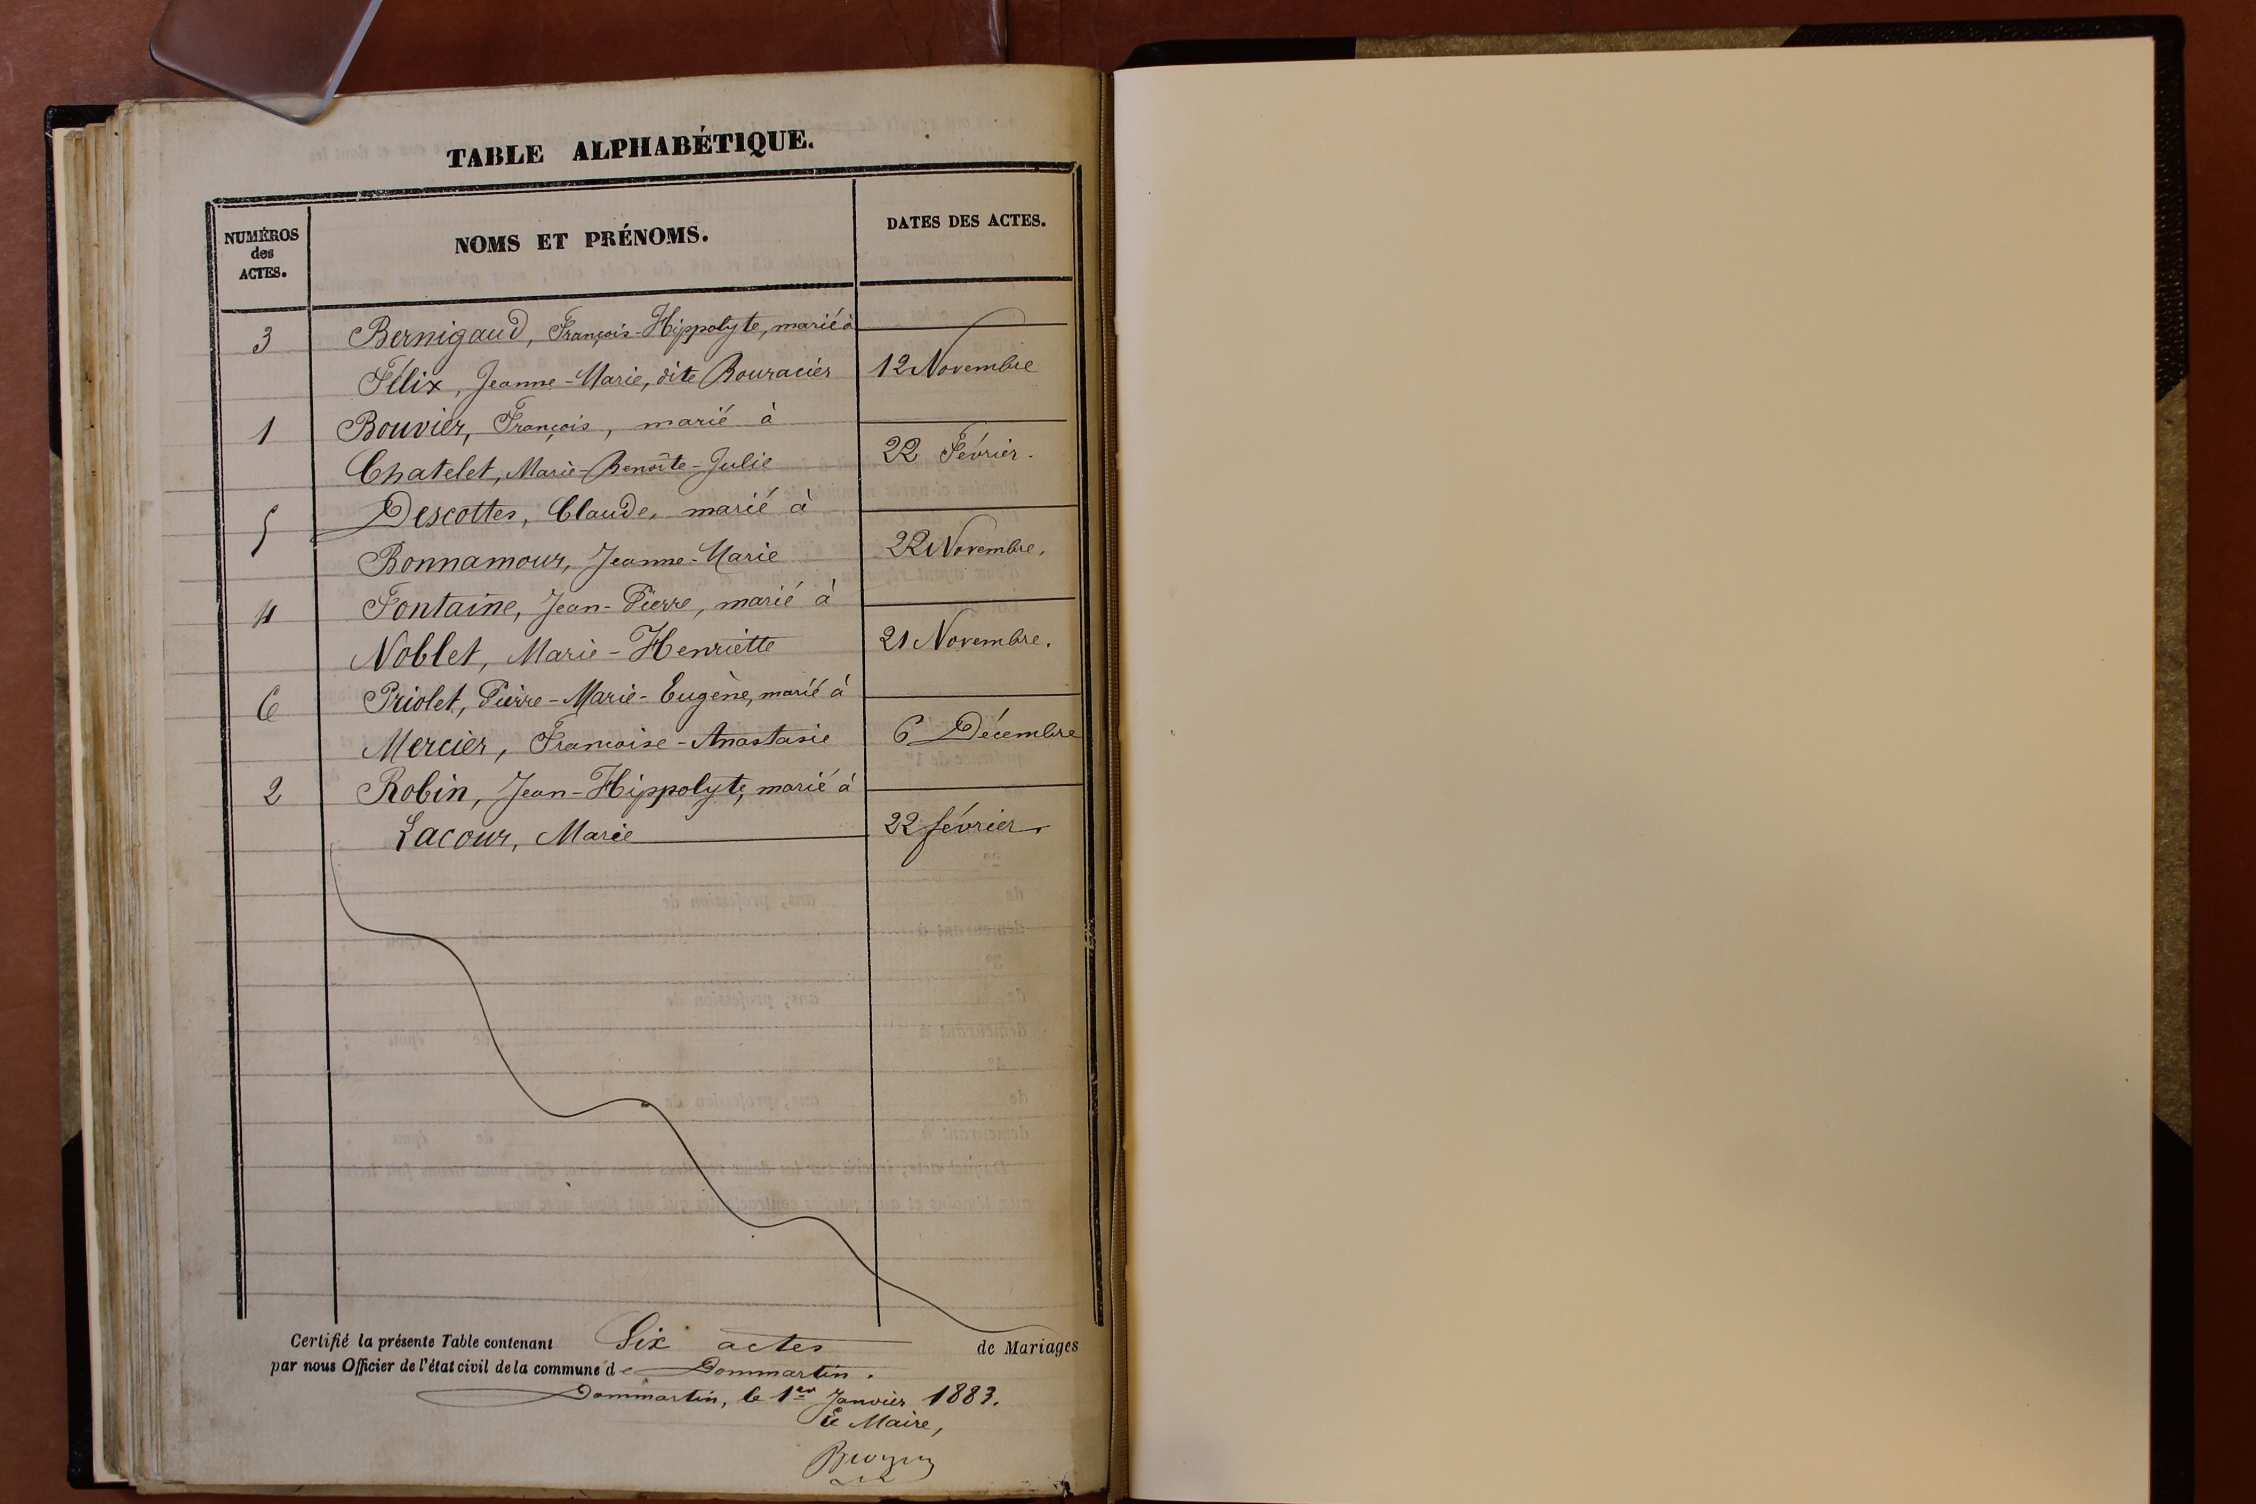 TABLE ALPHABÉTIQUE.
NUMÉROS des ACTES.
NOMS ET PRÉNOMS.
DATES DES ACTES.
3 Bernigaud, François-Hippolyte, marié à
Félix, Jeanne-Marie, dite Bouracier 12 Novembre
1 Bouvier, François, marié à
Chatelet, Marie-Benoîte-Julie 22 Février.
5 Descottes, Claude, marié à
Bonnamour, Jeanne-Marie 22 Novembre.
4 Fontaine, Jean-Pierre, marié à
Noblet, Marie-Henriette 21 Novembre.
6 Priolet, Pierre-Marie-Eugène, marié à
Mercier, Francoise-Anastasie 6 Décembre
2 Robin, Jean-Hippolyte, marié à
Lacour, Marie 22 février.
Certifié la présente Table contenant Six actes de Mariages
par nous Officier de l'état civil de la commune de Dommartin.
Dommartin, le 1er Janvier 1883.
Le Maire,